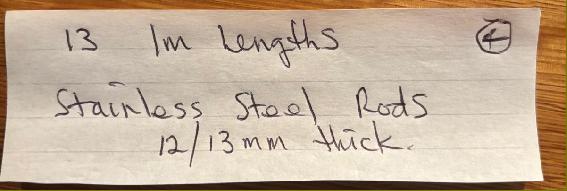 13 1m Lengths
Stainless Steel Rods
12/13mm thick.